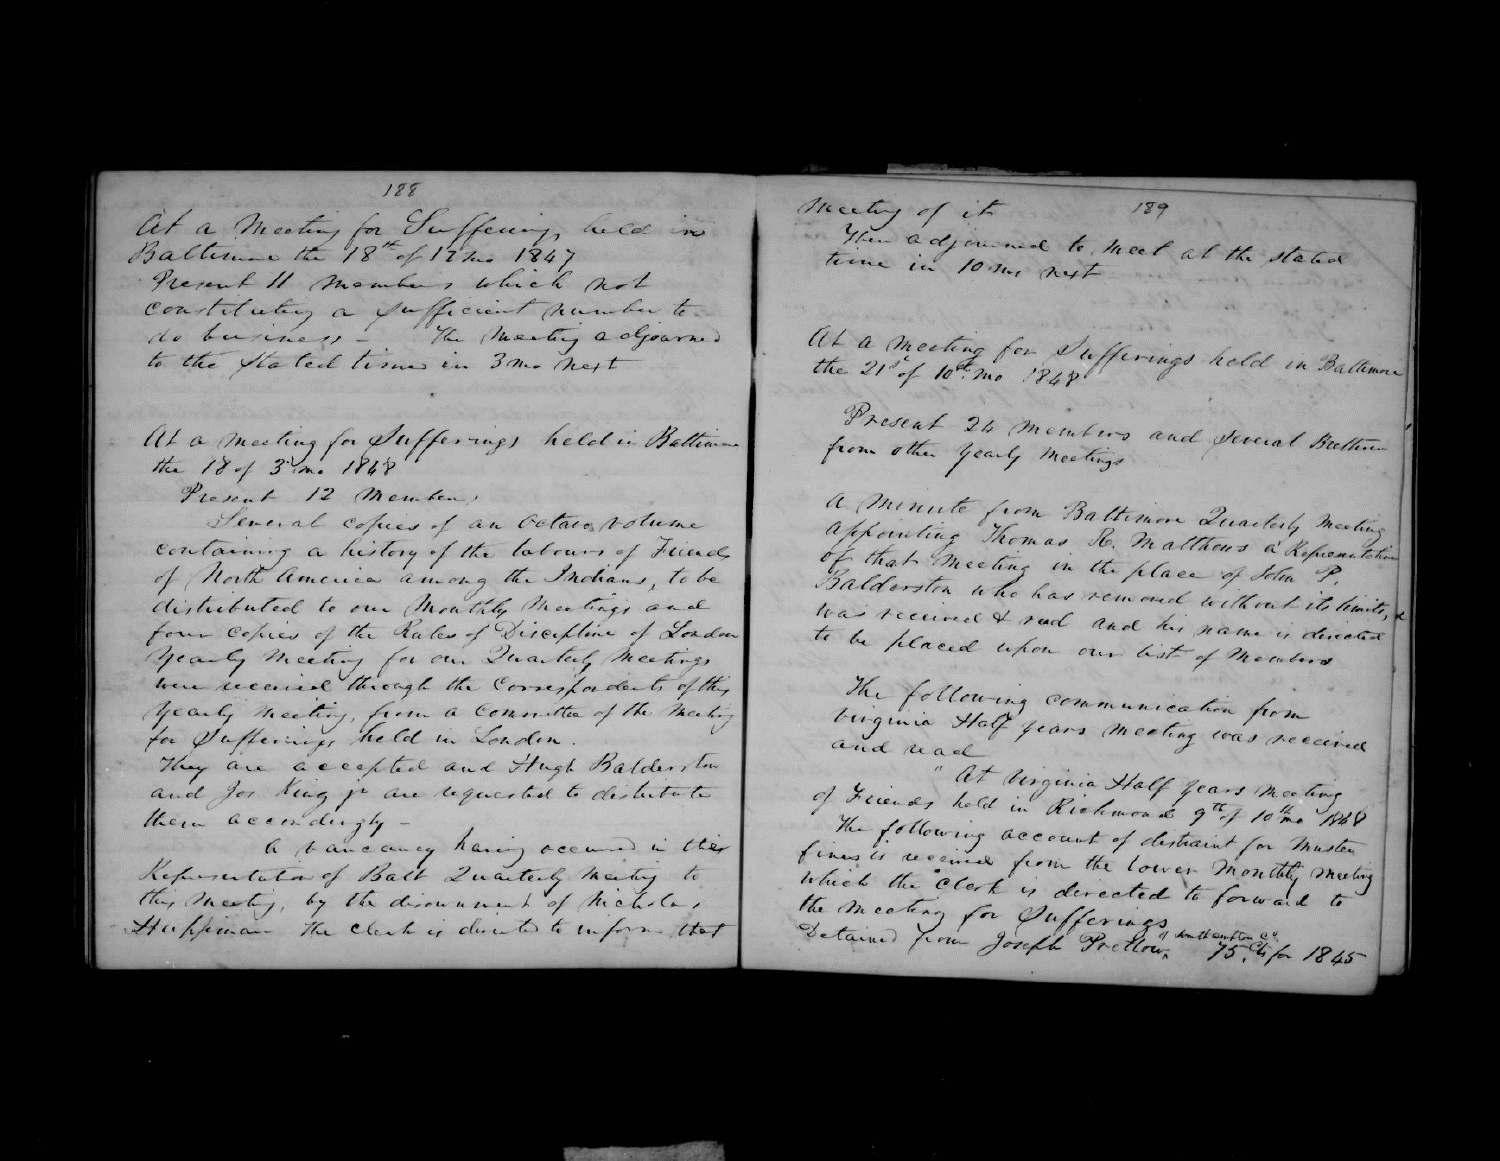 188
At a Meeting for Sufferings held in
Baltimore the 18th of 12 mo 1847
Present 11 members which not
constituting a sufficient number to
do business - The Meeting adjourned
to the stated time in 3 mo next
At a meeting for Sufferings held in Baltimore
the 18 of 3 mo 1848
Present 12 Members.
Several copies of an octavo volume
containing a history of the labours of Friends
of North America among the Indians, to be
distributed to our Monthly Meetings and
four copies of the Rules of Discipline of London
Yearly Meeting for our Quarterly Meetings
were received through the correspondents of this
Yearly Meeting, from a committee of the Meeting
for Sufferings held in London.
They are accepted and Hugh Balderston
and Jos. King jr are requested to distribute
them accordingly -
A vancancy having occurred in the
Representation of Balt Quarterly Meeting to
this Meeting, by the disownment of Nicholas
Huppman the clerk is directed to inform that
189
Meeting of it
Then adjourned to meet at the stated
time in 10 mo next
At a meeting for Sufferings held in Baltimore
the 21st of 10th mo 1848
Present 24 members and several Brethren
from other Yearly Meetings
A minute from Baltimore Quarterly Meeting
appointing Thomas R. Matthews a Representative
of that Meeting in the place of John P.
Balderston who has removed without its limits, &
was received & read and his name is directed
to be placed upon our list of Members
The following communication from
Virginia Half years Meeting was received
and read
"At Virginia Half years Meeting
of Friends held in Richmond 9th of 10th mo 1848
The following account of distraint for Muster
fines is received from the lower Monthly Meeting
which the Clerk is directed to forward to
the Meeting for Sufferings
of Southampton Co.
Detained from Joseph Pretlow 75 Cts for 1845